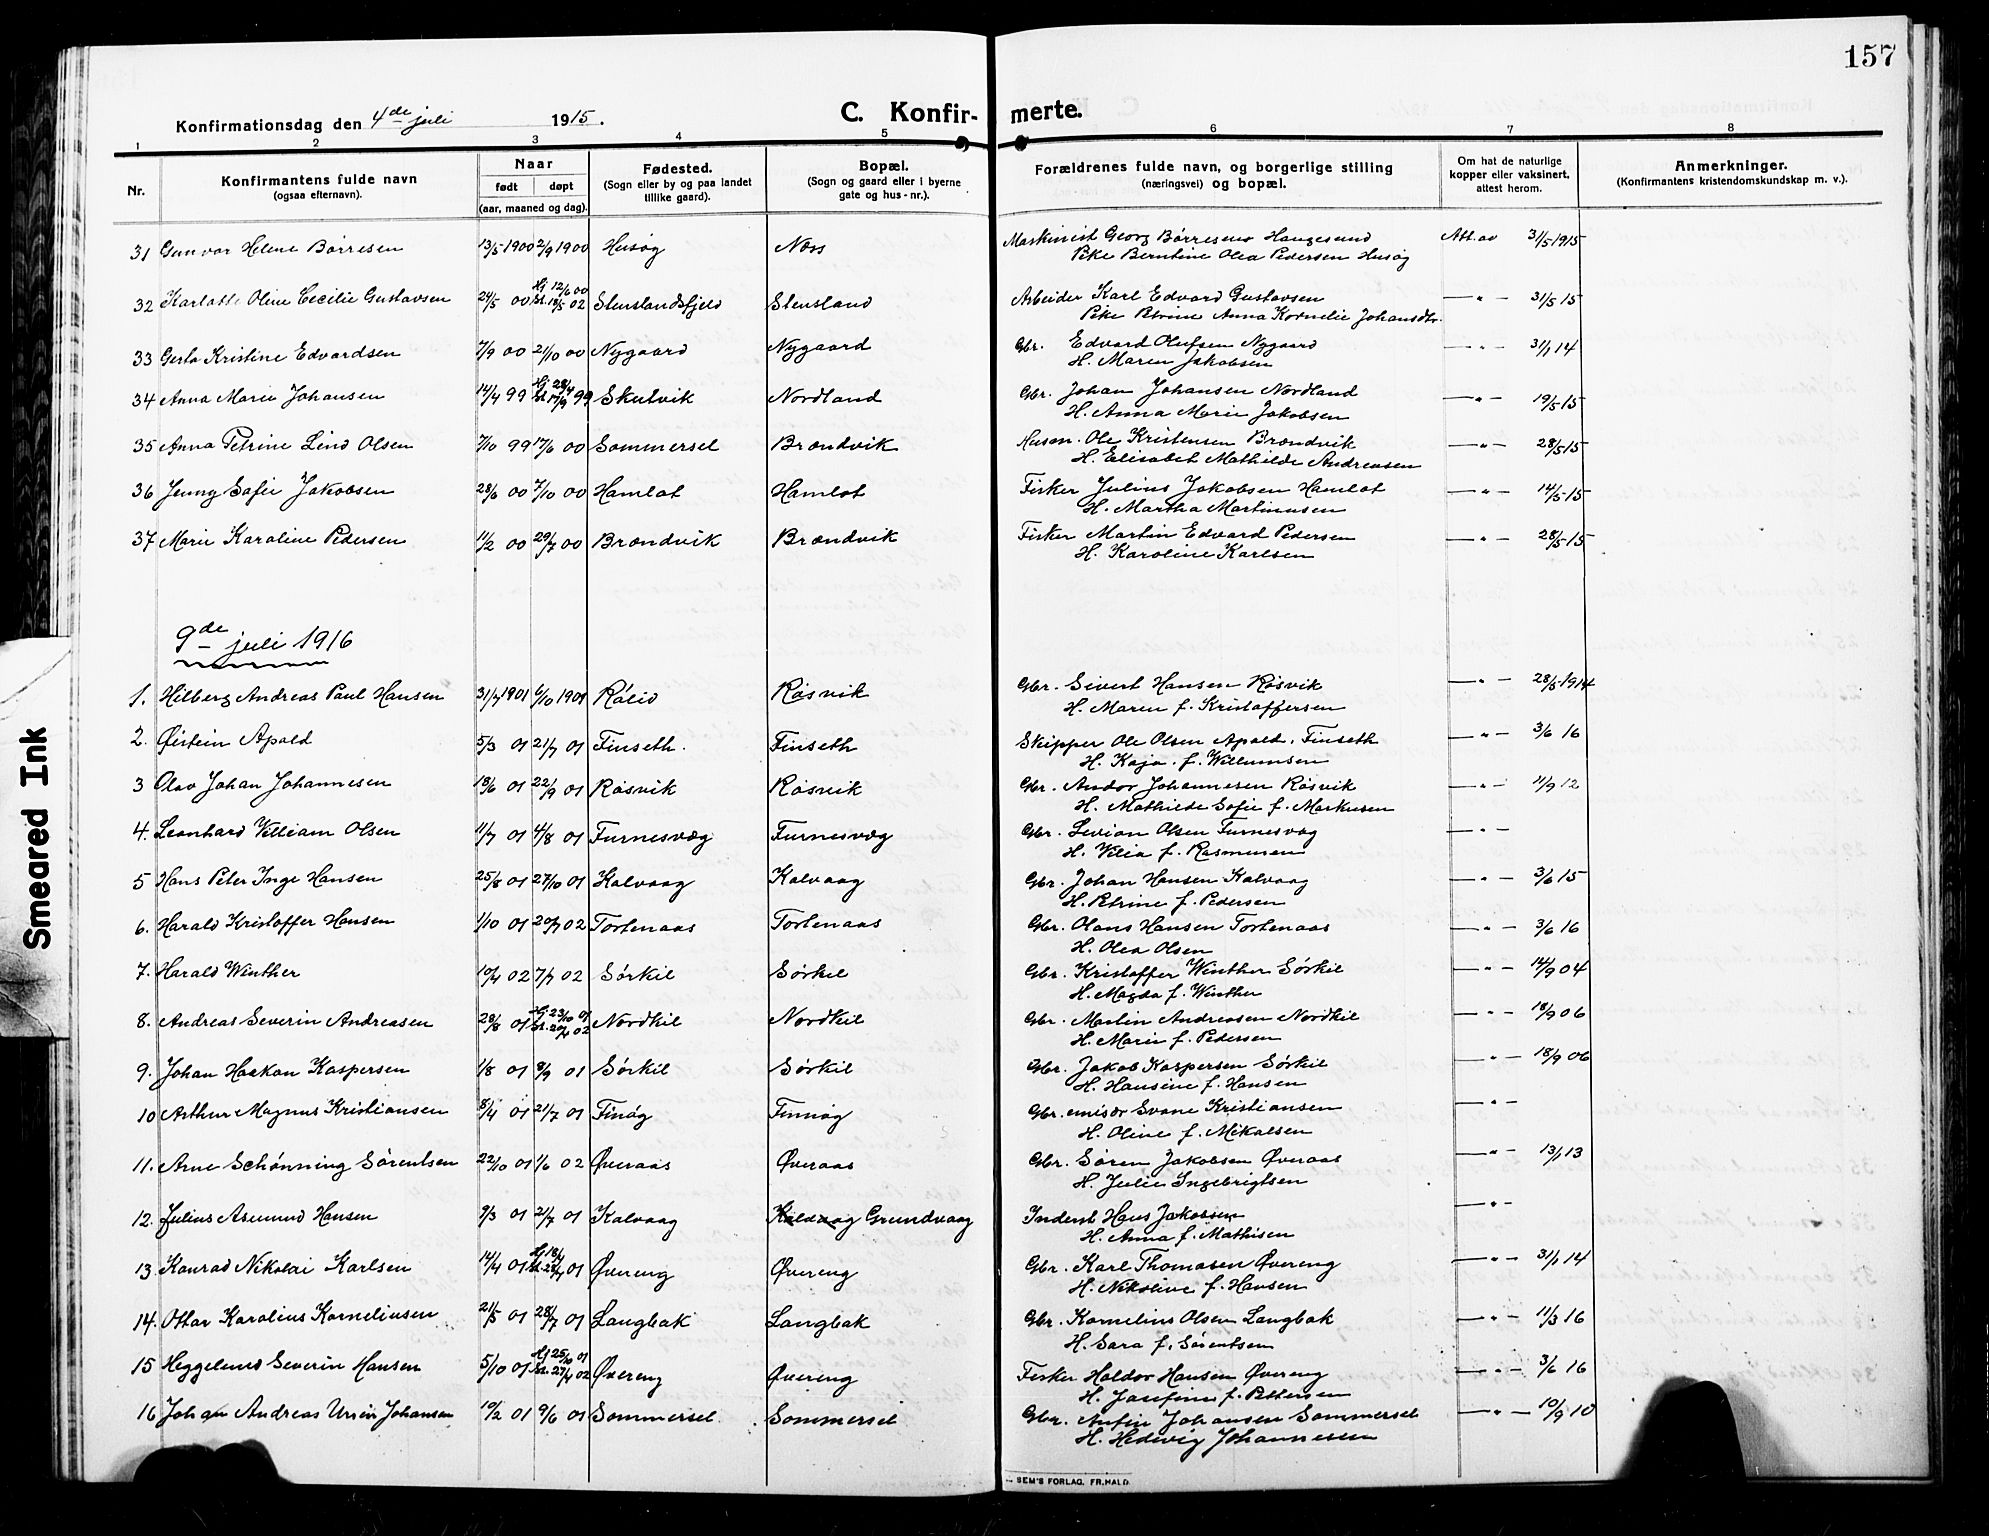 157
Konfirmationsdag den 4de juli 1915.
C. Konfirmerte.
1 2 3 4 5 6 7 8
Nr. Konfirmantens fulde navn (ogsaa efternavn). Naar født døpt (aar, maaned og dag). Fødested. (Sogn eller by og paa landet tillike gaard). Bopæl. (Sogn og gaard eller i byerne gate og hus-nr.). Forældrenes fulde navn, og borgerlige stilling (næringsvei) og bopæl. Om hat de naturlige kopper eller vaksinert, attest herom. Anmerkninger. (Konfirmantens kristendomskundskap m. v.).
31 Gunvor Helene Børresen 13/5 1900 2/9 1900 Husøg Næs Maskinist Georg Børresen Haugesund Att. av 31/5 1915
Pike Berntine Olea Pedersen Husøg
32 Karlotte Oline Cecilie Gustavsen 24/5 00 Hj 12/6 00 St. 18/5 02 Stenslandsfjeld Stensland Arbeider Karl Edvard Gustavsen — " — 31/5 15
Pike Petrine Anna Kornelie Johansdtr.
33 Gerta Kristine Edvardsen 7/9 00 21/10 00 Nygaard Nygaard Gbr. Edvard Olufsen Nygaard — " — 31/1 14
H. Maren Jakobsen
34 Anna Marie Johansen 14/4 99 Hj 28/4 99 Skutvik Nordland Gbr. Johan Johansen Nordland — " — 19/5 15
H. Anna Marie Jakobsen
35 Anna Petrine Lind Olsen 7/10 99 17/6 00 Sommersel Brændvik Husm. Ole Kristensen Brændvik — " — 28/5 15
H. Elisabet Mathilde Andreasen
36 Jenny Sofie Jakobsen 28/6 00 7/10 00 Hamlot Hamlot Fisker Julius Jakobsen Hamlot — " — 14/5 15
H. Martha Martinusen
37 Marie Karoline Pedersen 11/2 00 29/7 00 Brændvik Brændvik Fisker Martin Edvard Pedersen — " — 28/5 15
H. Karoline Karlsen
9de juli 1916
1. Hilberg Andreas Paul Hansen 31/7 1901 6/10 1901 Rølid Røsvik Gbr. Sivert Hansen Røsvik — " — 28/5 1914
H. Maren f. Kristoffersen
2. Øistein Apold 5/3 01 21/7 01 Finseth. Finseth Skipper Ole Olsen Apold, Finseth — " — 3/6 16
H. Kaja f. Willumsen
3 Olav Johan Johannesen 18/6 01 22/9 01 Røsvik Røsvik Gbr. Andor Johannesen Røsvik — " — 11/9 12
H. Mathilde Sofie f. Markusen
4. Leonhard Villiam Olsen 11/7 01 4/8 01 Furnesvæg Furnesvæg Gbr. Olsen Furnesvæg — " —
H. f. Rasmusen
5 Hans Peter Inge Hansen 25/8 01 27/10 01 Kalvaag Kalvaag Gbr. Johan Hansen Kalvaag — " — 3/6 15
H. Petrine f. Pedersen
6. Harald Kristoffer Hansen 1/10 01 20/7 02 Tortenaas Tortenaas Gbr. Hansen Tortenaas — " — 3/6 16
H. Olea Olsen
7. Harald Winther 10/4 02 7/7 02 Sørkil Sørkil Gbr. Kristoffer Winther Sørkil — " — 14/9 04
H. Magda f. Winther
8. Andreas Severin Andreasen 28/8 01 Hj. 23/10 01 St. 20/4 02 Nordkil Nordkil Gbr. Martin Andreasen Nordkil — " — 18/9 06
H. Marie f. Pedersen
9. Johan Haakon Kaspersen 1/8 01 8/9 01 Sørkil Sørkil Gbr. Jakob Kaspersen Sørkil — " — 18/9 06
H. Hansine f. Hansen
10 Arthur Magnus Kristiansen 8/4 01 21/7 01 Finøg Finnøg Gbr. Svane Kristiansen — " —
H. Oline f. Mikalsen
11. Arne Schønning Sørentsen 22/10 01 1/6 02 Øveraas Øveraas Gbr. Søren Jakobsen Øveraas — " — 13/1 13
H. Julie Ingebrigtsen
12. Julius Asmund Hansen 9/3 01 21/7 01 Kalvaag Kalvaag Grundvaag Inderst Hans Jakobsen — " —
H. Anna f. Mathisen
13. Konrad Nikolai Karlsen 14/4 01 Hj 18/4 01 Øvereng Øvereng Gbr. Karl Thomasen Øvereng — " — 31/1 14
H. Nikoline f. Hansen
14. Ottar Karolius Korneliusen 21/5 01 28/7 01 Langbak Langbak Gbr. Kornelius Olsen Langbak — " — 11/3 16
H. Sara f. Sørentsen
15 Heggelund Severin Hansen 5/10 01 Hj 25/10 01 St. 27/4 02 Øvereng Øvereng Fisker Haldor Hansen Øvereng — " — 3/6 16
H. Josefine f. Pettersen
16 Johan Andreas Johansen 10/2 01 9/6 01 Sommersel Sommersel Gbr. Anfin Johansen Sommersel — " — 10/9 10
H. Hedevig Johannessen
SEM'S FORLAG, FR.HALD.
Smeared Ink